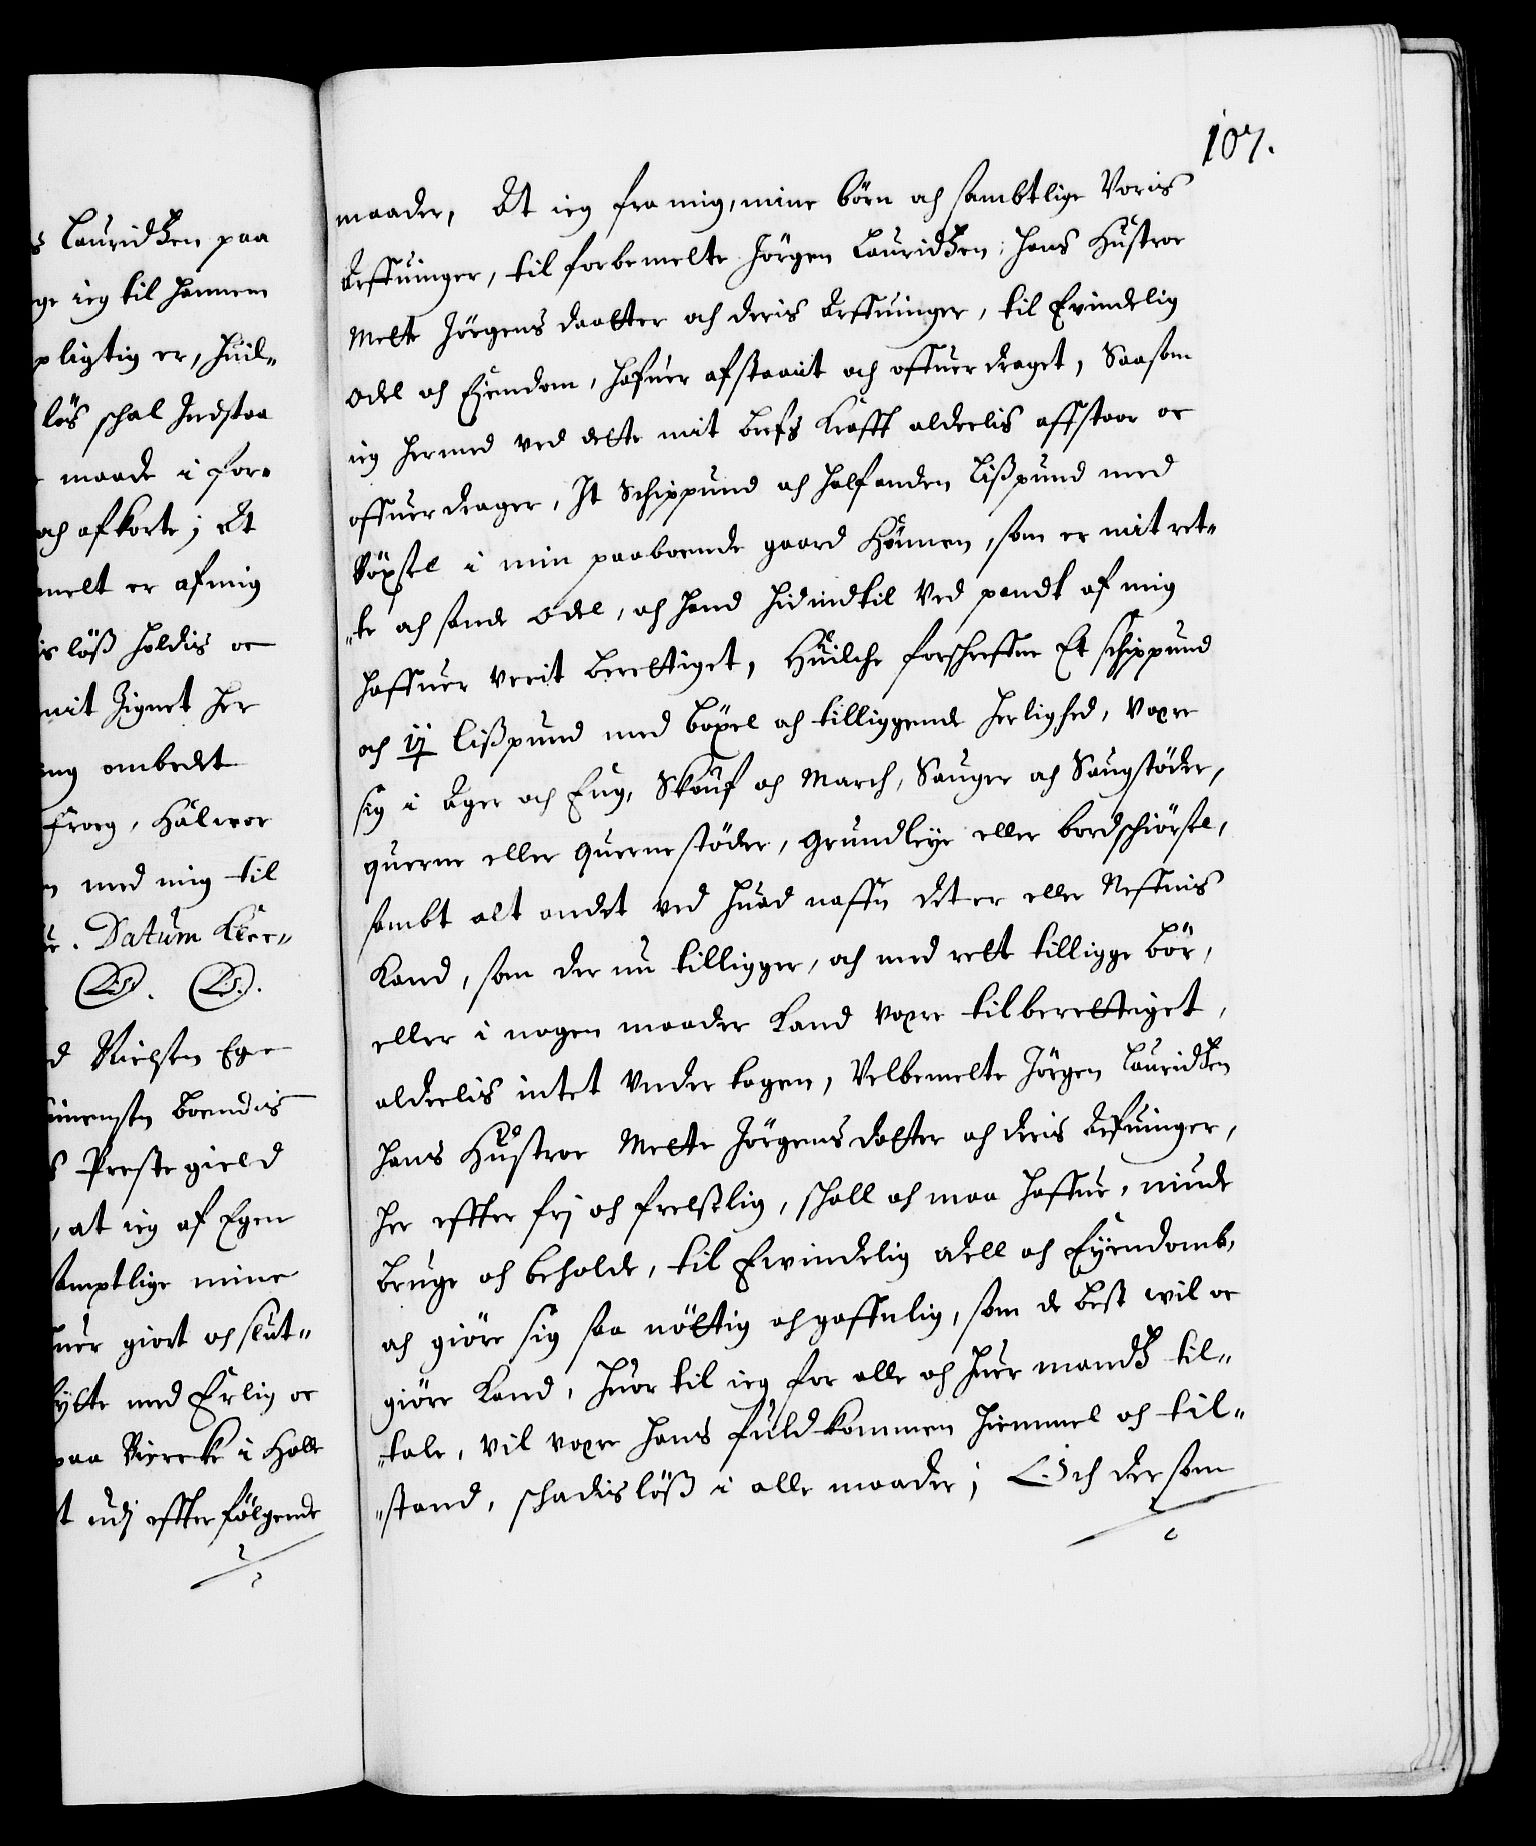 s Lauridtzen paa
ge ieg til hannem
pligtig er, huil-
lös schal Indstaa
maade i for-
och afkorte; At
melt er af mig
is löß holdis oc
mit Zignet her
ing ombedet
Froeg, Hälwor
n med mig til
ur. Datum Kier-
L.S. L.S.
d Nielsen Ege
boendis
s Prestegield
, at ieg af Egen
samptlige mine
uer giort och slut-
ÿtte med Erlig oc
paa Vierecke i Holle
t udj effterfölgende
107.
maader, At ieg fra mig, mine börn och sambtlige Voris
Arffuinger, til forbemelte Jörgen Lauridtzen, hans Hustroe
Mette Jörgens daatter och deris Arffuinger, til Evindelig
odel och Eÿendom, hafuer afstaait och offuerdraget, Saasom
ieg hermed ved dette mit brefs krafft alderlis affstaar oc
offuerdrager, It Schippund och halfanden Lißpund med
böxsel i min paaboende gaard Hönnen, som er mit ret-
"te och sande odel, och hand hidindtil Ved pandt af mig
haffuer verit berettiget, Huilche forschreffne Et schippund
och 1½ Lißpund med böxel och tilliggende herlighed, være
sig i Ager och Eng, Skouf och March, Sauger och Saugstöder,
querne eller Quernestöder, grundleÿe eller bordschiörsel,
sambt alt andet ved huad naffn det er eller Neffnis
kand, som der nu tilligger, och med rette tilligge bör,
eller i nogen maader kand være tilberettiget,
alderlis intet Undertagen, Velbemelte Jörgen Lauridtzen
hans Hustroe Mette Jörgensdatter och deris Arfuinger,
her effter frj och frelselig, schall och maa haffue, niude
bruge och beholde, til Ewindelig odell och Eÿendomb,
och giöre sig saa nöttig och gaffnlig, som de best wil oc
giöre kand, huortil ieg for alle och huer mandtz til-
"tale, vil være hans fuldkommen hiemmel och til-
"stand, schadislöß i alle maader; Och dersom